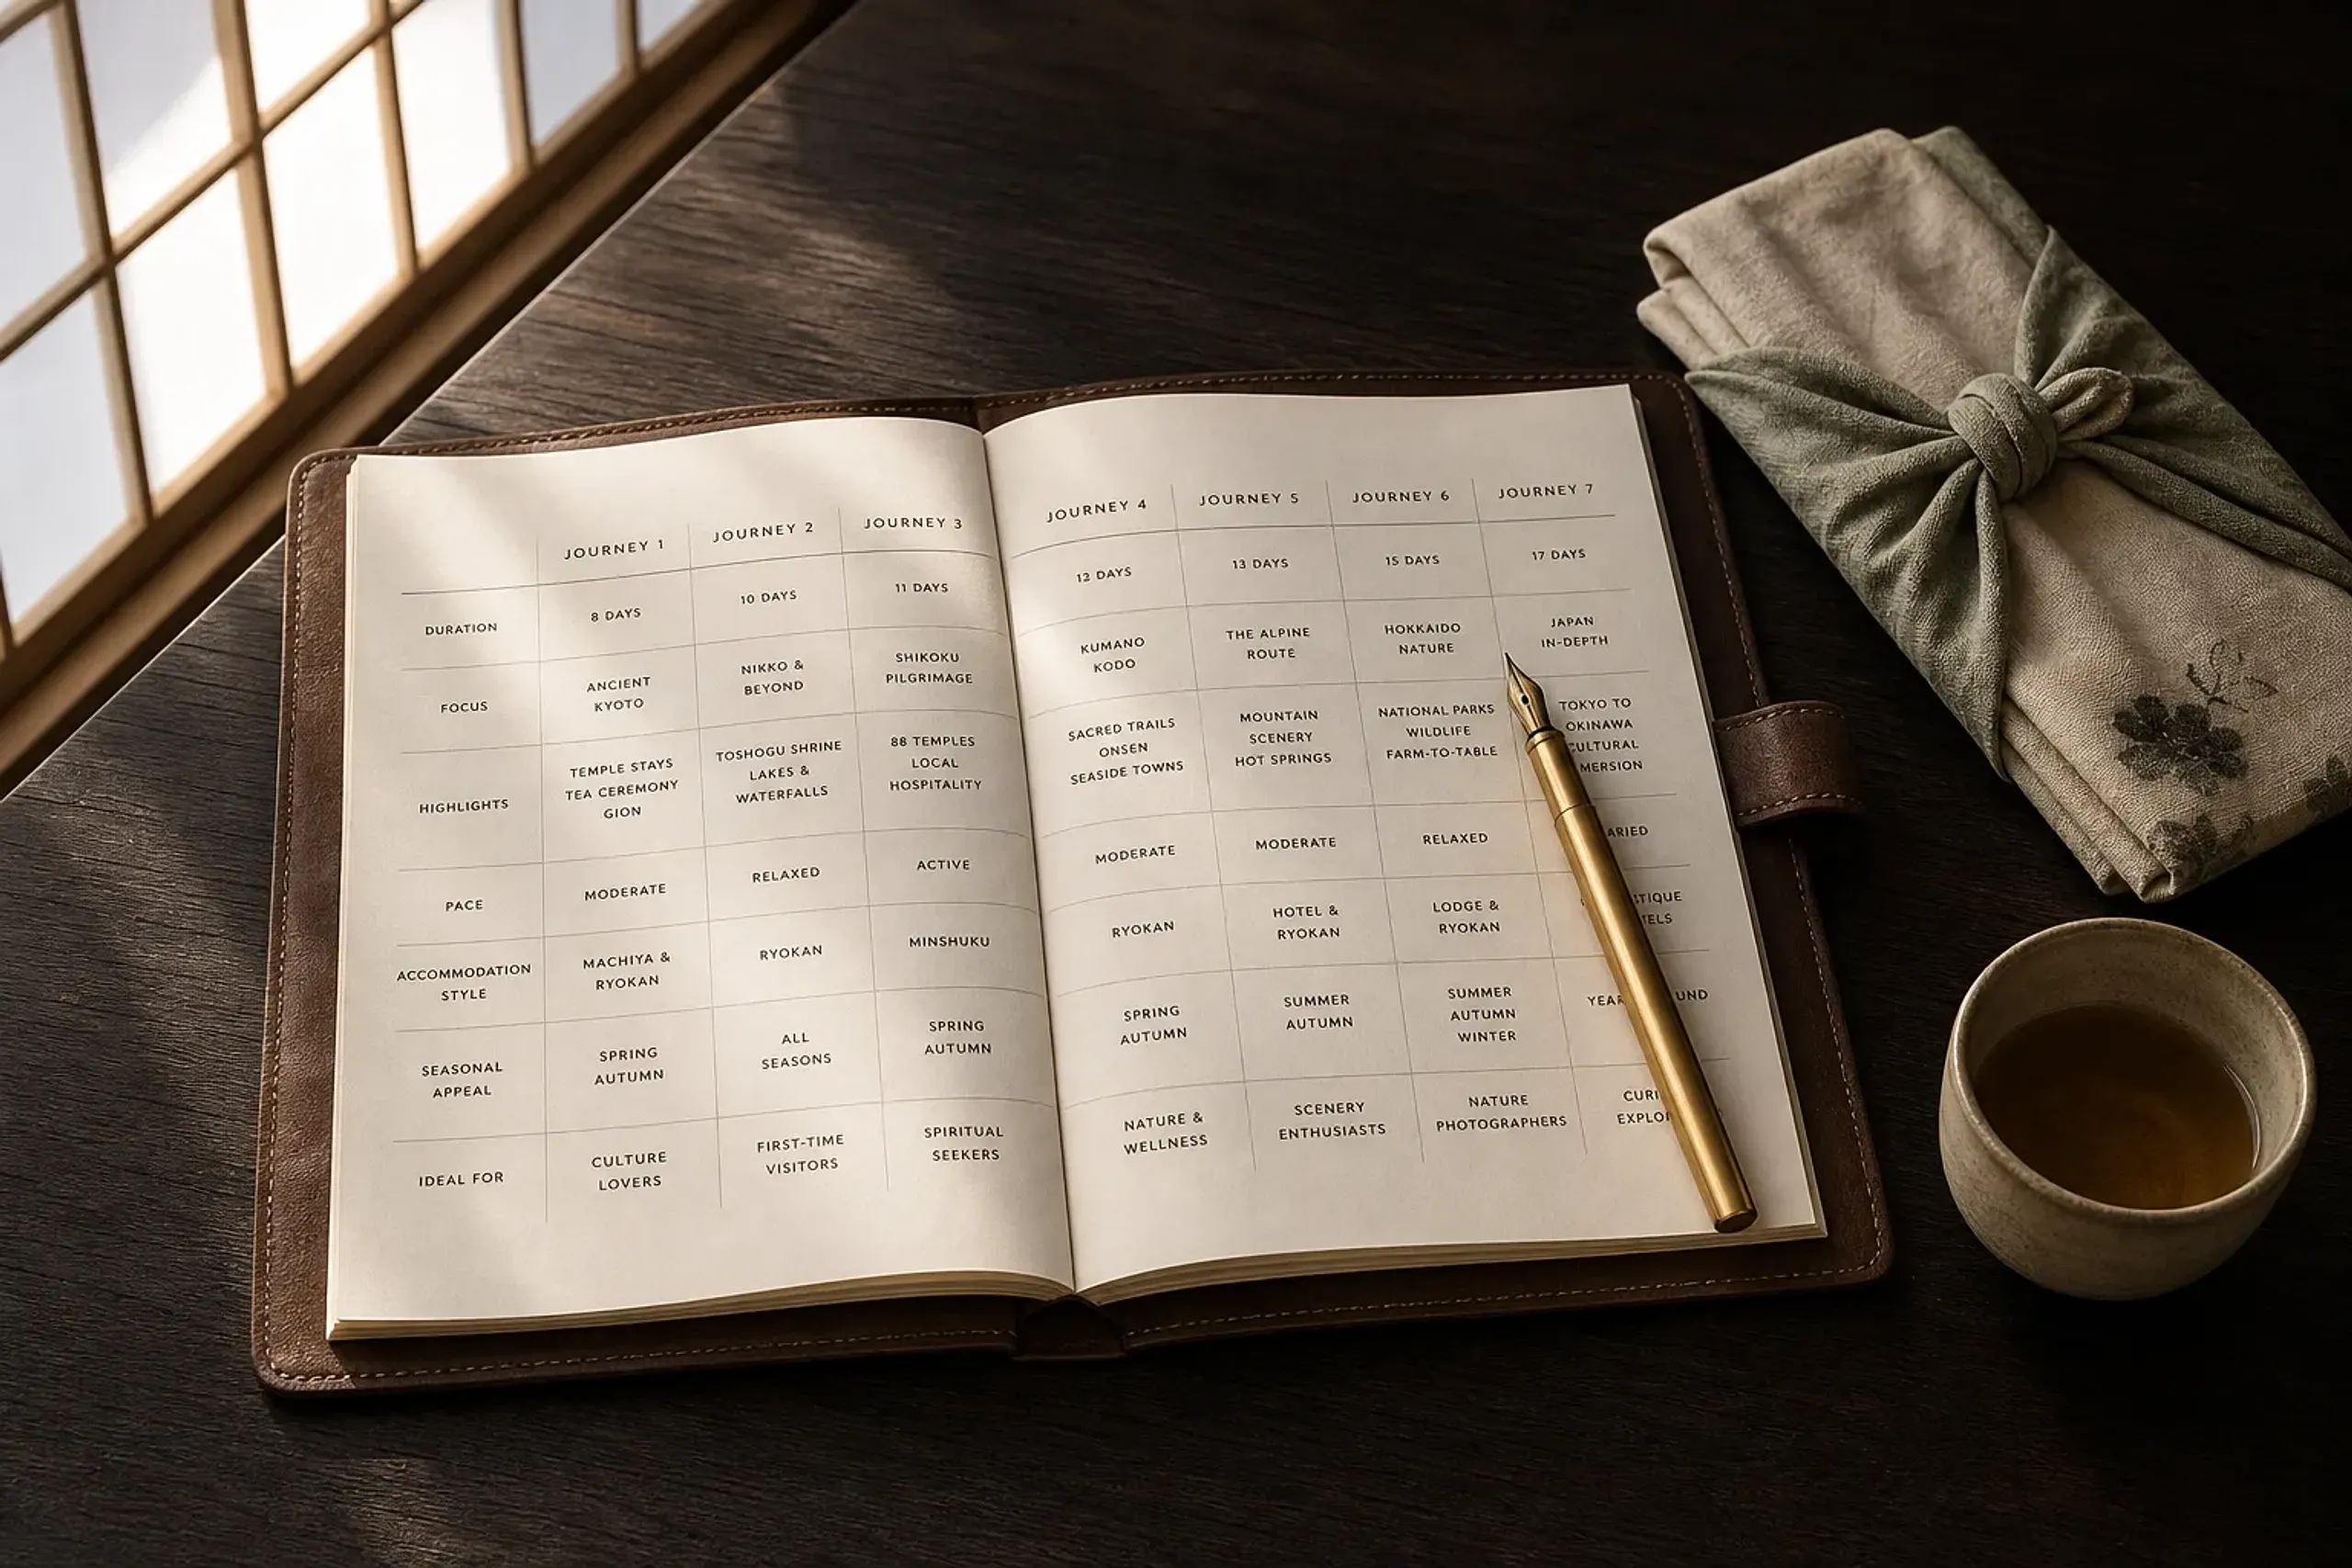 JOURNEY 1
JOURNEY 2
JOURNEY 3
DURATION
8 DAYS
10 DAYS
11 DAYS
FOCUS
ANCIENT
KYOTO
NIKKO &
BEYOND
SHIKOKU
PILGRIMAGE
HIGHLIGHTS
TEMPLE STAYS
TEA CEREMONY
GION
TOSHOGU SHRINE
LAKES &
WATERFALLS
88 TEMPLES
LOCAL
HOSPITALITY
PACE
MODERATE
RELAXED
ACTIVE
ACCOMMODATION
STYLE
MACHIYA &
RYOKAN
RYOKAN
MINSHUKU
SEASONAL
APPEAL
SPRING
AUTUMN
ALL
SEASONS
SPRING
AUTUMN
IDEAL FOR
CULTURE
LOVERS
FIRST-TIME
VISITORS
SPIRITUAL
SEEKERS
JOURNEY 4
JOURNEY 5
JOURNEY 6
JOURNEY 7
12 DAYS
13 DAYS
15 DAYS
17 DAYS
KUMANO
KODO
THE ALPINE
ROUTE
HOKKAIDO
NATURE
JAPAN
IN-DEPTH
SACRED TRAILS
ONSEN
SEASIDE TOWNS
MOUNTAIN
SCENERY
HOT SPRINGS
NATIONAL PARKS
WILDLIFE
FARM-TO-TABLE
TOKYO TO
OKINAWA
MODERATE
MODERATE
RELAXED
RYOKAN
HOTEL &
RYOKAN
LODGE &
RYOKAN
SPRING
AUTUMN
SUMMER
AUTUMN
SUMMER
AUTUMN
WINTER
NATURE &
WELLNESS
SCENERY
ENTHUSIASTS
NATURE
PHOTOGRAPHERS